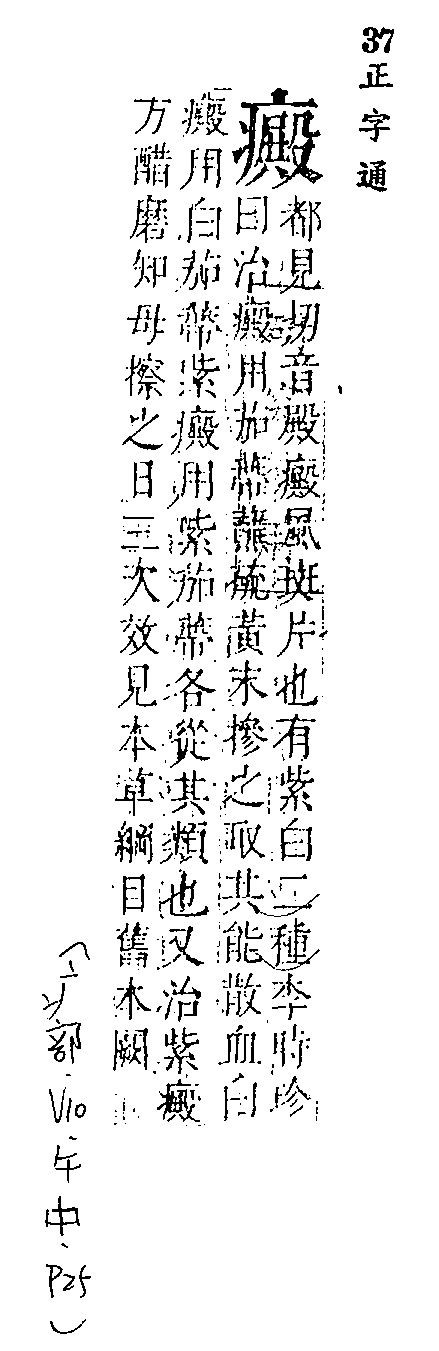 37 正字通
癜
都見切音殿癜風斑片也有紫白二種李時珍
曰治癜用茄蒂蘸硫黃末摻之取其能散血白
癜用白茄蒂紫癜用紫茄蒂各從其類也又治紫癜
方醋磨知母擦之日三次效見本草綱目舊本闕
(疒部、V10、午中、P25)